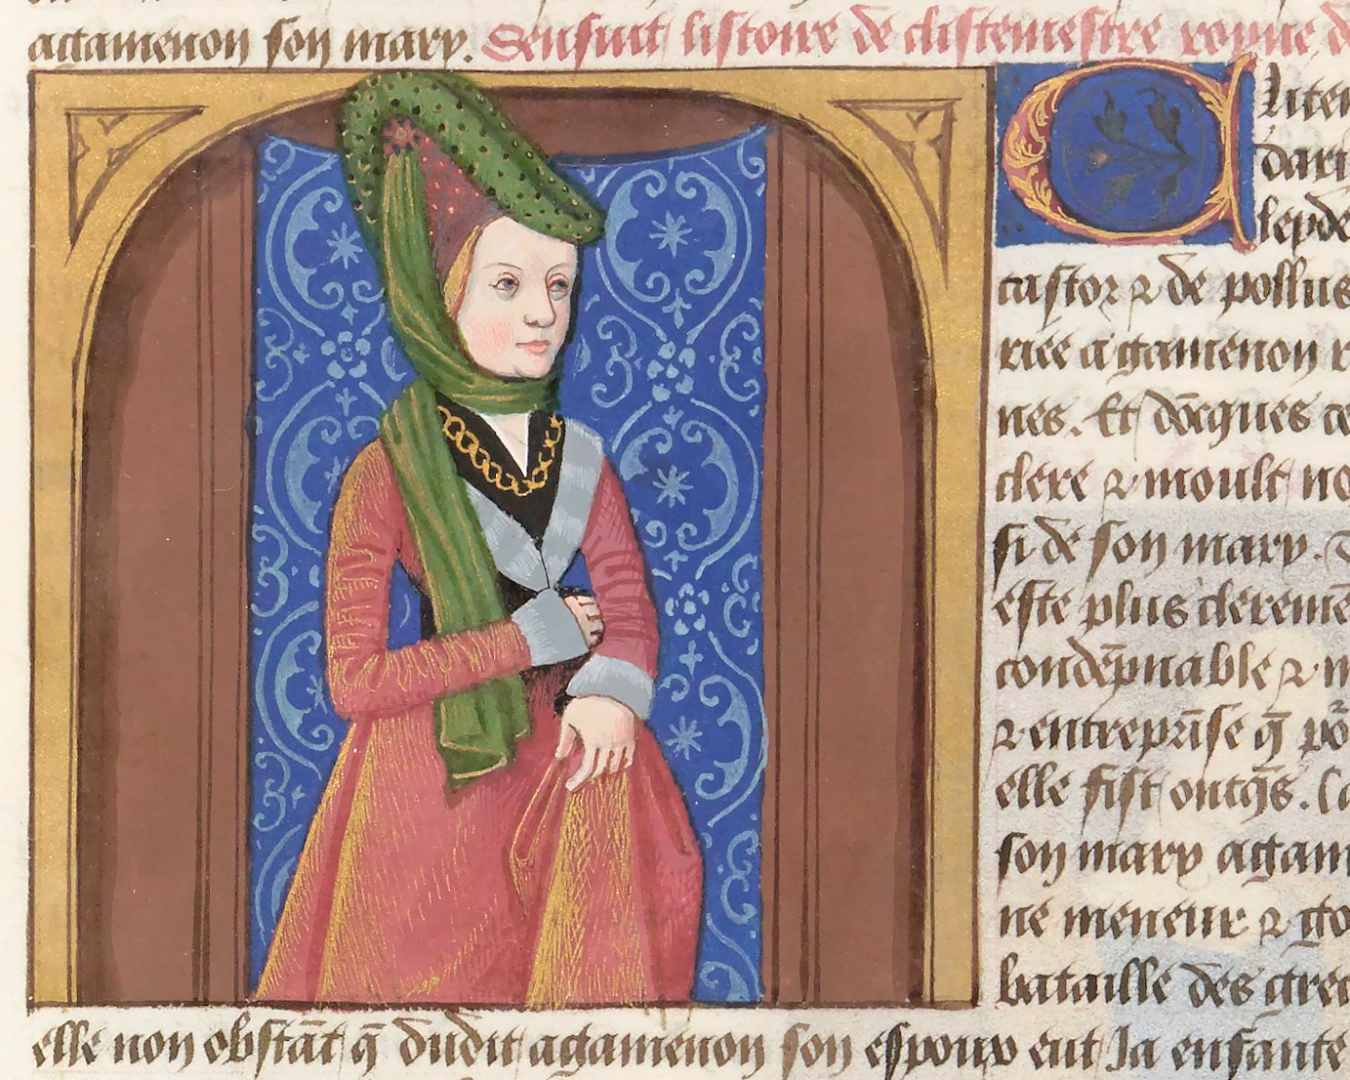 agamenon son mary. Sensuit listoire de clistemestre royne d
Clitem
dari
lepde
castor & de pollus
riee a agamenon r
nes. Et dōcques ce
clere & moult no
si de son mary.
este plus clereme
condēpnable & m
& entreprīse q̄ po
elle fist oncq̄s. Ca
son mary agam
ne meneur & go
bataille des grec
elle non obstāt q̄ dudit agamenon son espoux eut Ja enfante